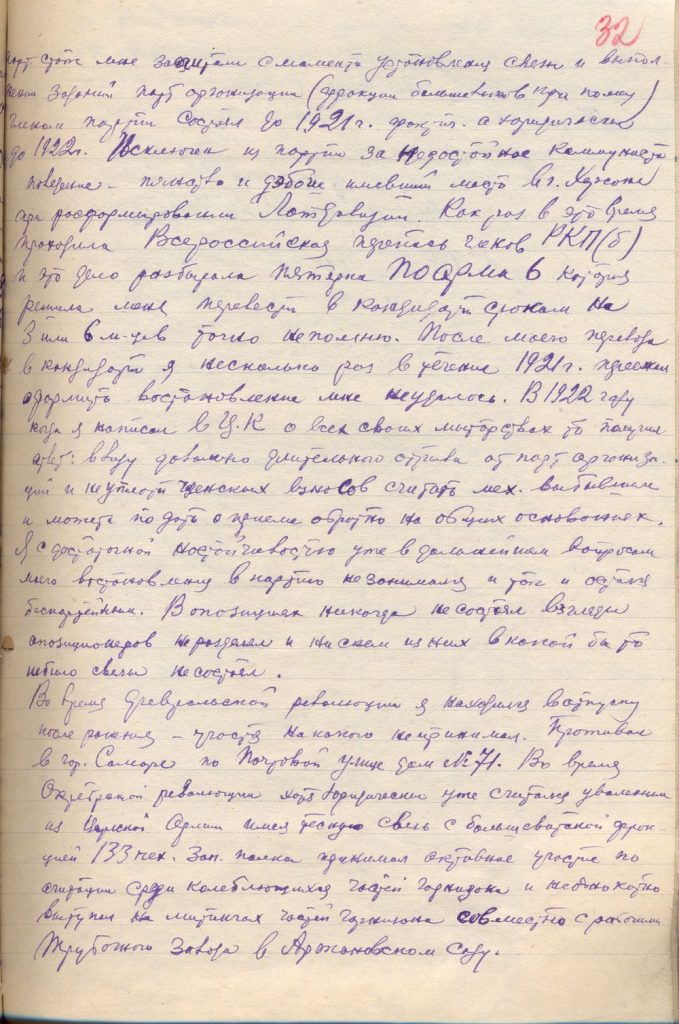 32
парт. стаж мне засчитали с момента установления связи и выпол-
нения заданий парт организации (фракции большевиков при полку)
членом партии состоял до 1921 г. фракт. а юридически
до 1922 г. Исключен из партии за недостойное коммуниста
поведение – пьянство и дебош имевший место в г. Херсоне
при расформировании Латдивизии. Как раз в это время
проходила Всероссийская перепись членов РКП(б)
и это дело разбирала пятерка ПОАРМА 6 которая
решила меня перевести в кандидаты сроком на
3 или 6 м-цев точно не помню. После моего перевода
в кандидаты я несколько раз в течение 1921 г.
оформить востановление мне неудалось. В 1922 году
когда я написал в Ц.К о всех своих мытарствах то получил
ответ: ввиду довольно длительного отрыва от парт организа-
ций и неуплаты членских взносов считать мех. выбывшим
и может подать о приеме обратно на общих основаниях.
Я с достаточной настойчивостью уже в дальнейшем вопросом
моего востановления в партию не занимался и так и остался
беспартийным. В опозициях никогда не состоял взгляды
опозиционеров не разделял и ни с кем из них в какой бы то
небыло связи не состоял.
Во время Февральской революции я находился в отпуску
после ранения – участия никакого не принимал. Проживал
в гор. Самаре по Почтовой улице дом № 71. Во время
Октябрьской революции хотя юридически уже считался уволенным
из Царской Армии имея тесную связь с большевистской фрак-
цией 133 пех. Зап. полка принимал активное участие по
агитации среди колеблющихся частей гарнизона и неоднократно
выступал на митингах частей гарнизона совместно с рабочими
Трубочного Завода в Аржановском саду.